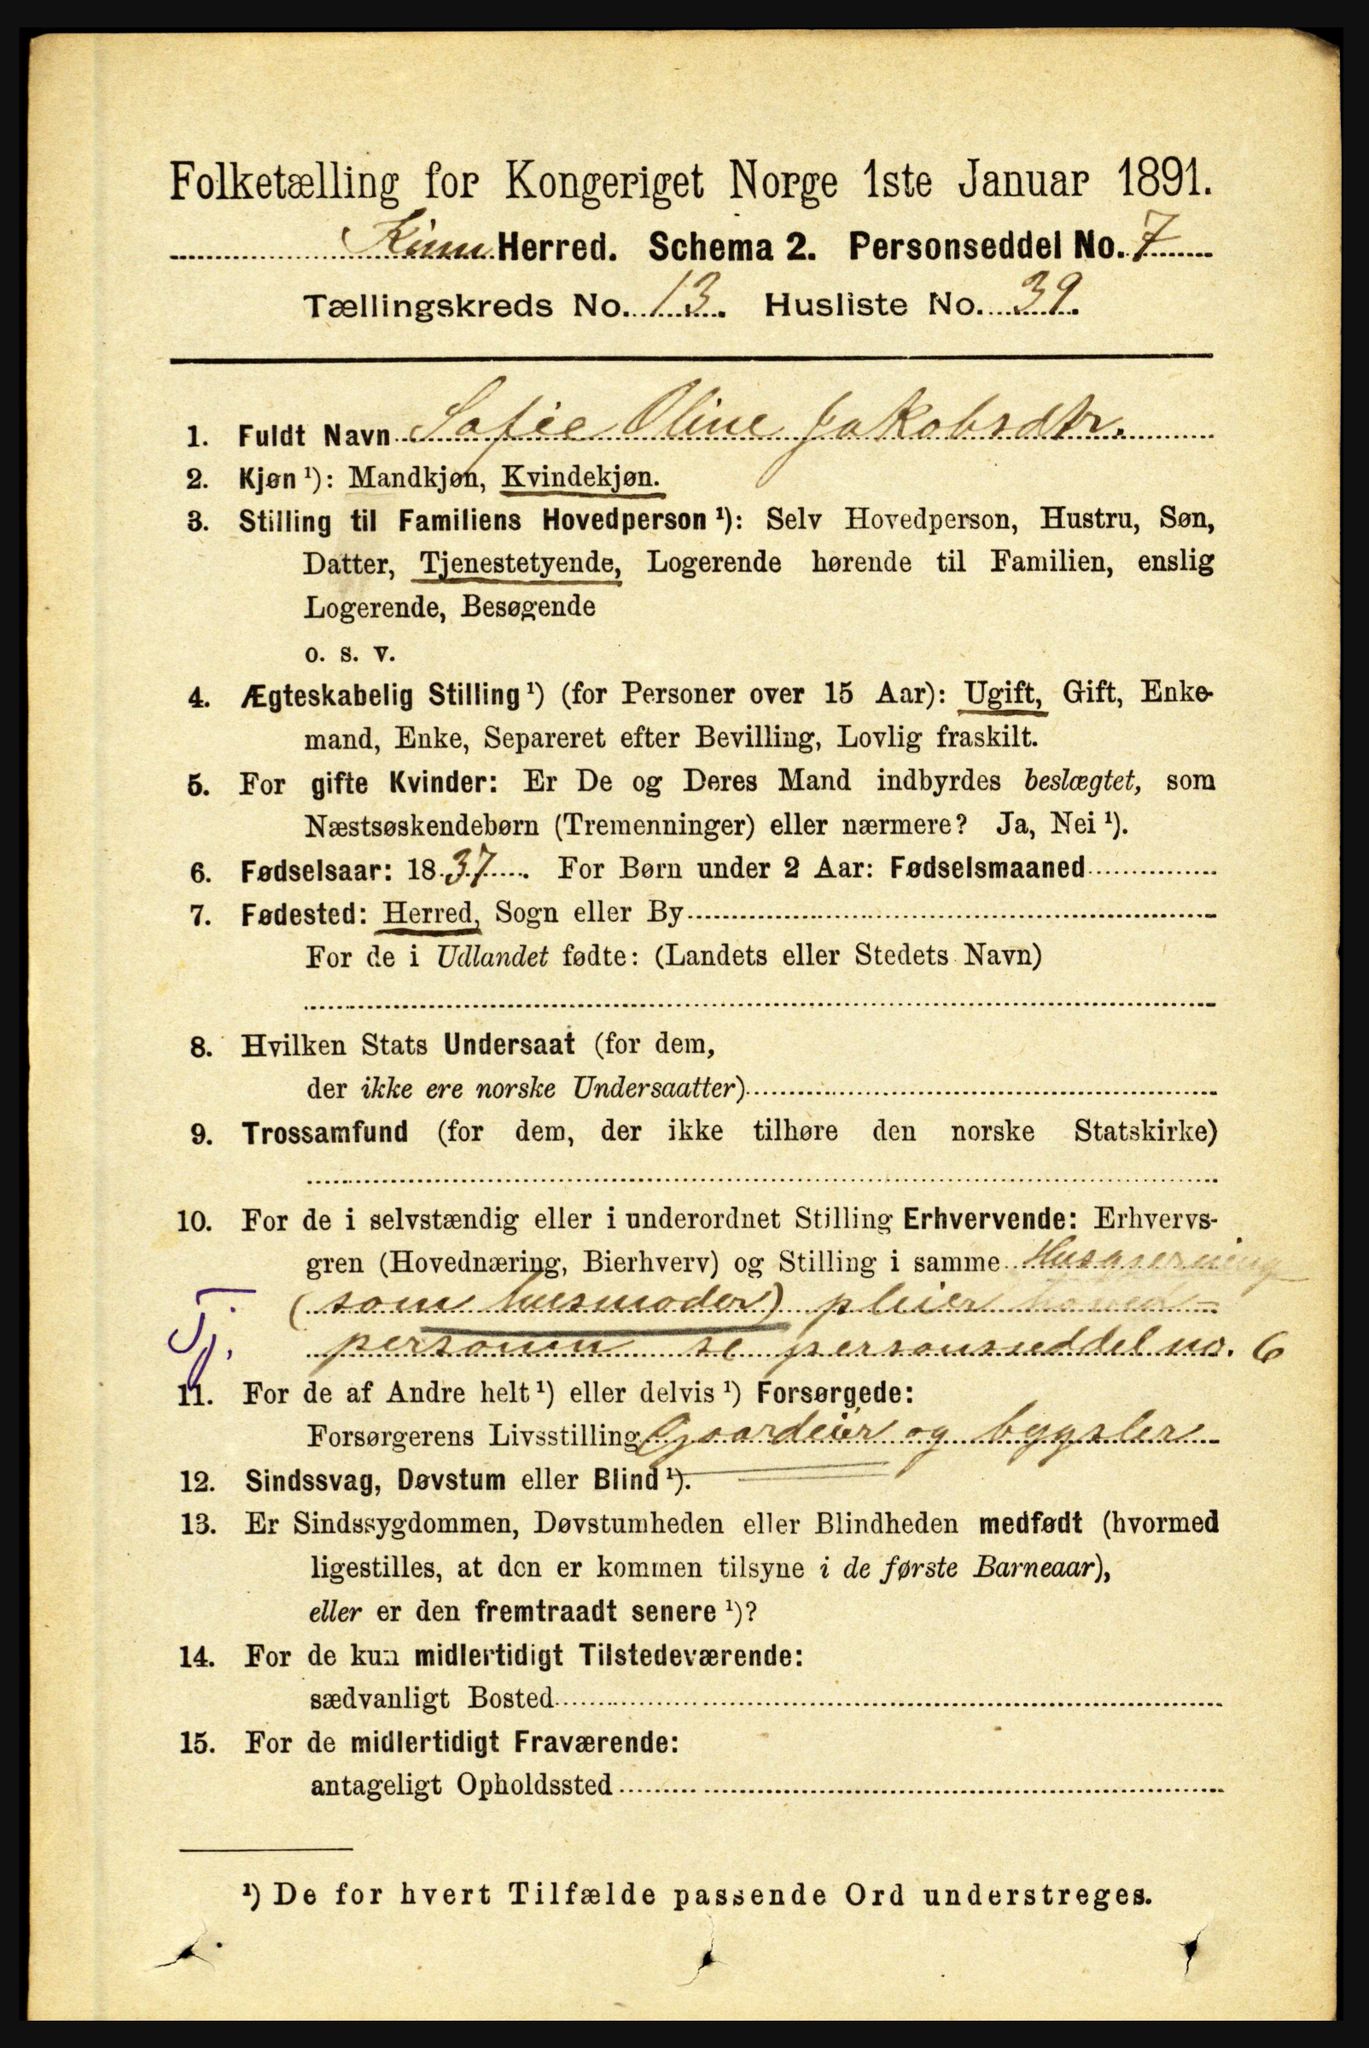 Folketælling for Kongeriget Norge 1ste Januar 1891.
Kinn Herred. Schema 2. Personseddel No. 7
Tællingskreds No. 13. Husliste No. 39.
1. Fuldt Navn Sofie Oline Jakobsdtr.
2. Kjøn ¹): Mandkjøn, Kvindekjøn.
3. Stilling til Familiens Hovedperson ¹): Selv Hovedperson, Hustru, Søn,
Datter, Tjenestetyende, Logerende hørende til Familien, enslig
Logerende, Besøgende
o. s. v.
4. Ægteskabelig Stilling ¹) (for Personer over 15 Aar): Ugift, Gift, Enke-
mand, Enke, Separeret efter Bevilling, Lovlig fraskilt.
5. For gifte Kvinder: Er De og Deres Mand indbyrdes beslægtet, som
Næstsøskendebørn (Tremenninger) eller nærmere? Ja, Nei ¹).
6. Fødselsaar: 1837. For Børn under 2 Aar: Fødselsmaaned
7. Fødested: Herred, Sogn eller By
For de i Udlandet fødte: (Landets eller Stedets Navn)
8. Hvilken Stats Undersaat (for dem,
der ikke ere norske Undersaatter)
9. Trossamfund (for dem, der ikke tilhøre den norske Statskirke)
10. For de i selvstændig eller i underordnet Stilling Erhvervende: Erhvervs-
gren (Hovednæring, Bierhverv) og Stilling i samme Husgjerning
(som husmoder) pleier hoved-
Tj. personen se personseddel no. 6
11. For de af Andre helt ¹) eller delvis ¹) Forsørgede:
Forsørgerens Livsstilling Gaardeier og bygsler
12. Sindssvag, Døvstum eller Blind ¹).
13. Er Sindssygdommen, Døvstumheden eller Blindheden medfødt (hvormed
ligestilles, at den er kommen tilsyne i de første Barneaar),
eller er den fremtraadt senere ¹)?
14. For de kun midlertidigt Tilstedeværende:
sædvanligt Bosted
15. For de midlertidigt Fraværende:
antageligt Opholdssted
¹) De for hvert Tilfælde passende Ord understreges.